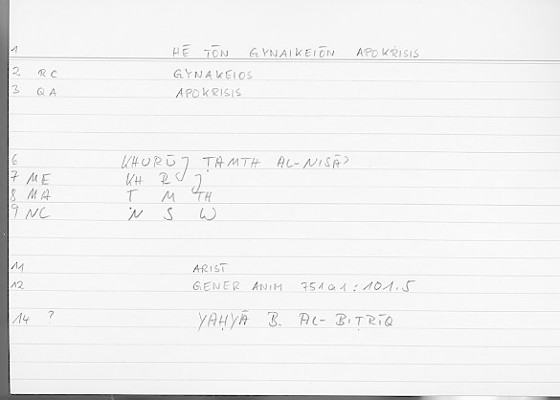 1 HĒ TŌN GYNAIKEIŌN APOKRISIS
2 RC GYNAKEIOS
3 QA APOKRISIS
6 KHURŪJ ṬAMTH AL-NISĀʾ
7 ME KH R J
8 MA T M TH
9 NC N S W
11 ARIST
12 GENER ANIM 751a1:101.5
14 ? YAḤYĀ B. AL-BIṬRĪQ